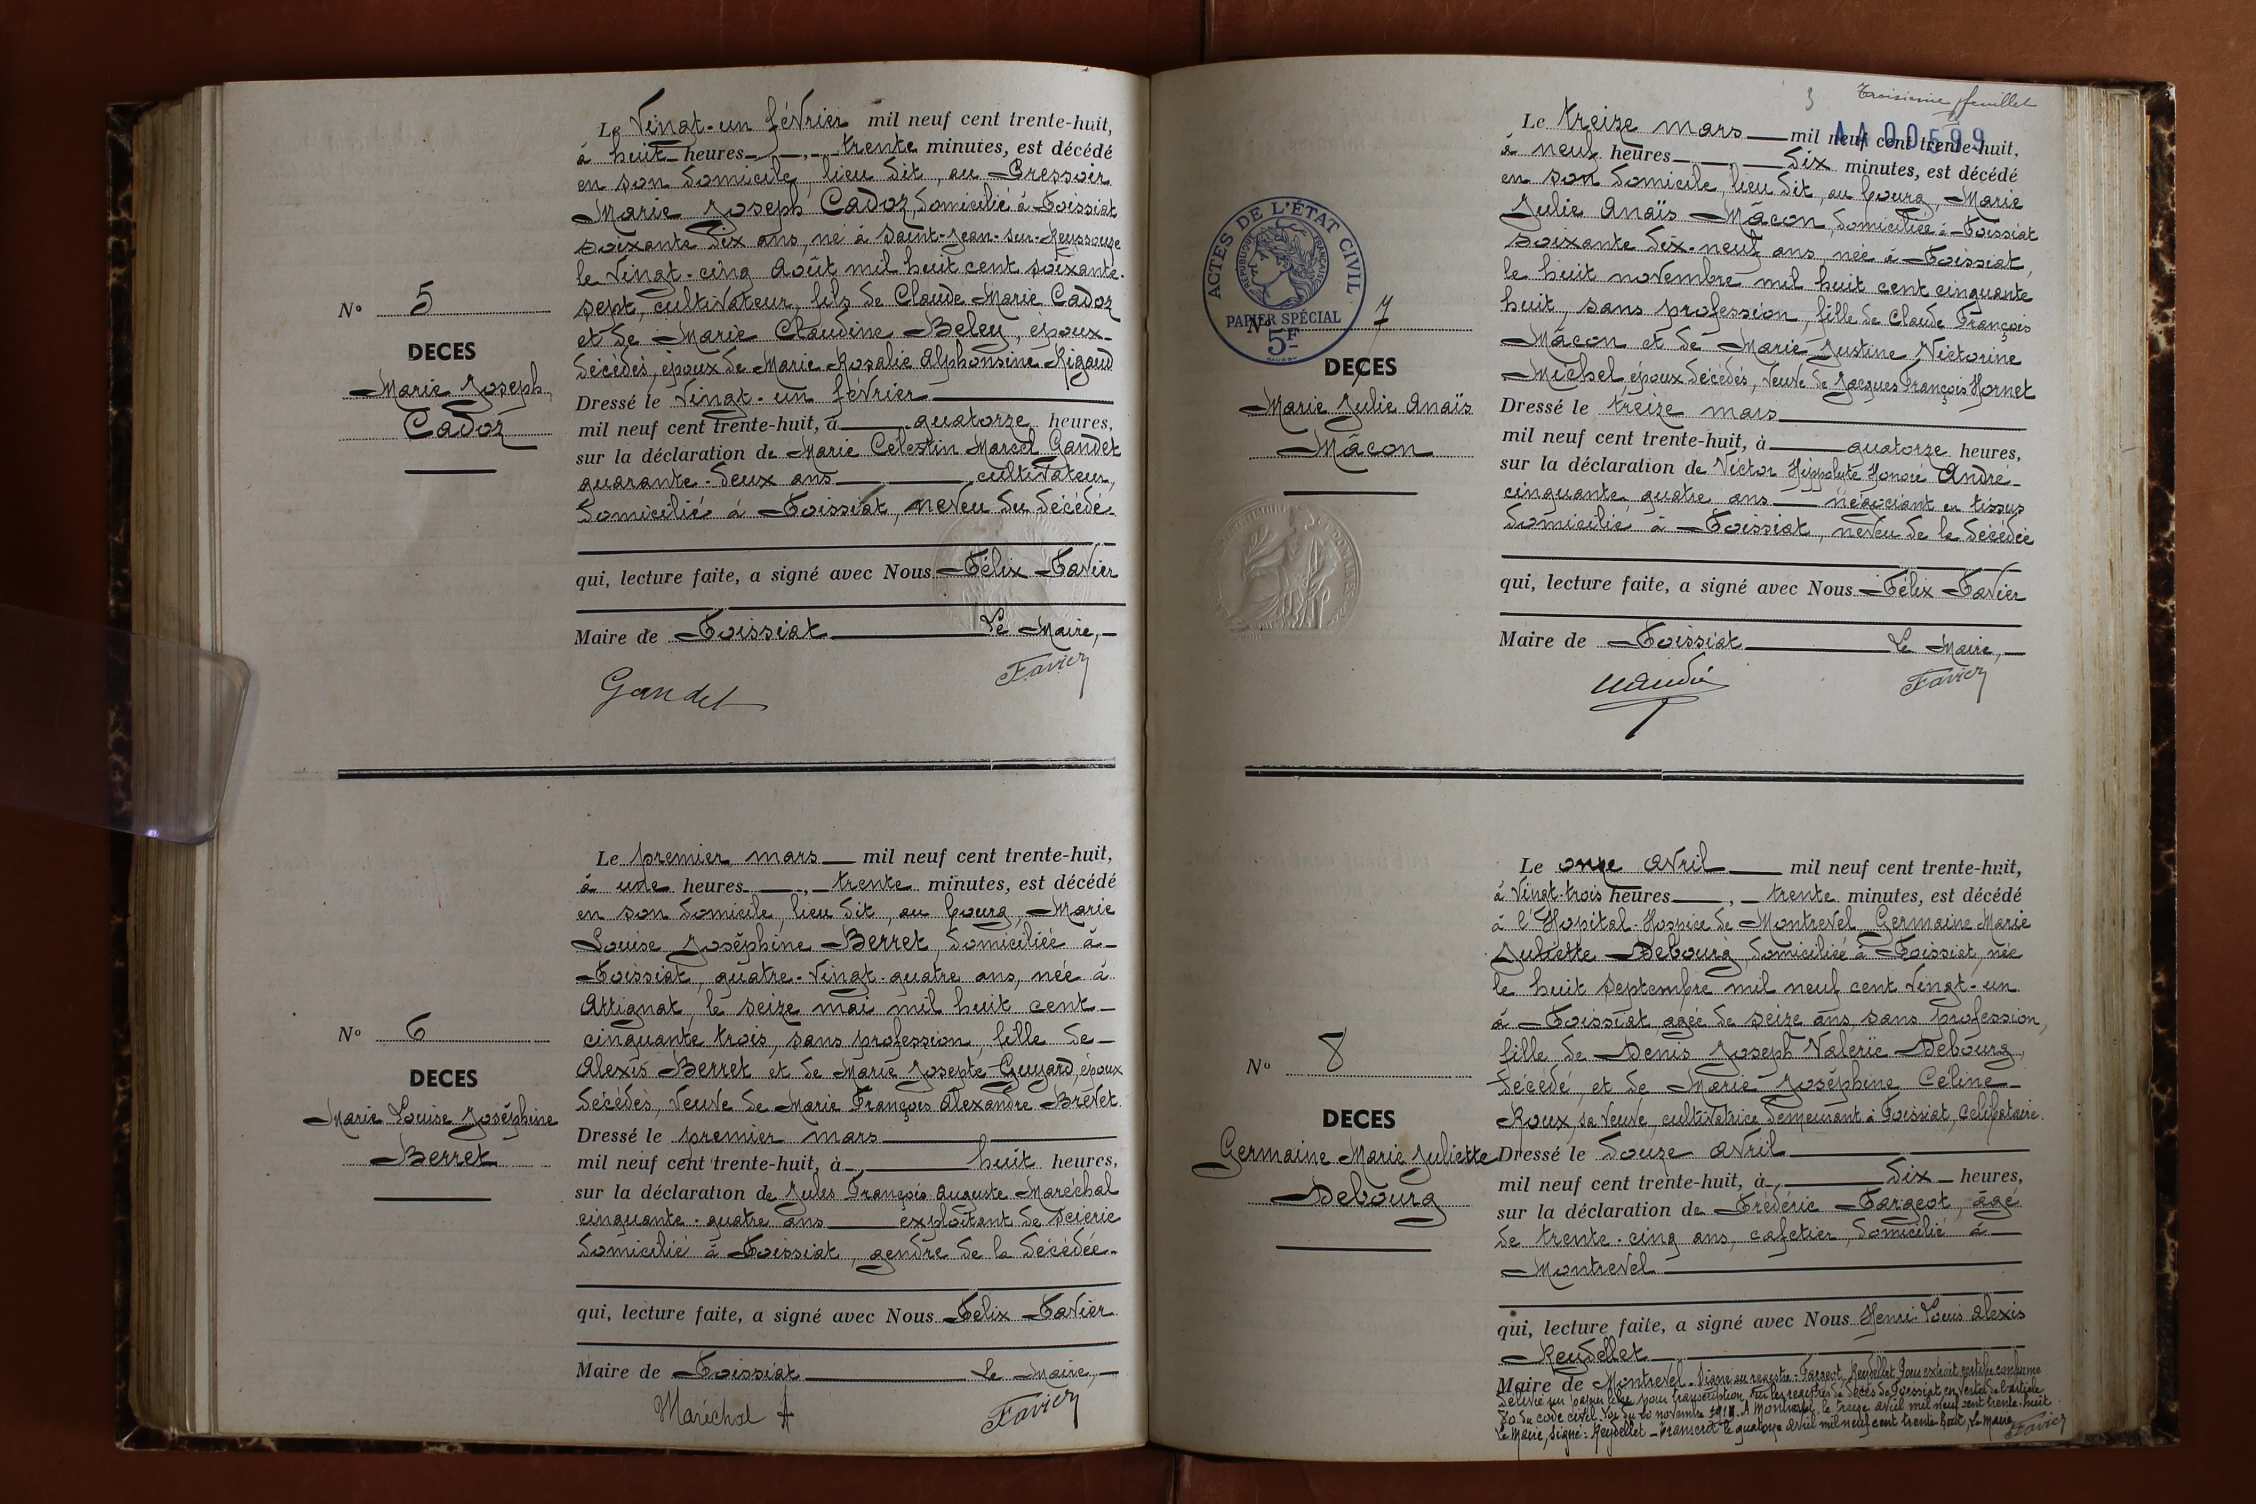 Le Vingt-un février mil neuf cent trente-huit,
à huit heures trente minutes, est décédé
en son domicile, lieu dit, au Pressoir
Marie Joseph Cadoz, domicilié à Foissiat
soixante dix ans, né à Saint-Jean-sur-Reyssouze
le vingt-cinq Août mil huit cent soixante-
sept, cultivateur, fils de Claude Marie Cadoz
et de Marie Claudine Beley, époux
décédés, époux de Marie Rosalie Alphonsine Rigaud
Dressé le Vingt-un février
mil neuf cent trente-huit, à quatorze heures,
sur la déclaration de Marie Célestin Marcel Gandet
quarante-deux ans, cultivateur,
domicilié à Foissiat, neveu du décédé
qui, lecture faite, a signé avec Nous Félix Favier
Maire de Foissiat Le Maire,
Gandet Favier
No 5
DECES
Marie Joseph
Cadoz
Le premier mars mil neuf cent trente-huit,
à une heures, trente minutes, est décédé
en son domicile, lieu dit, au bourg, Marie
Louise Joséphine Berret, domiciliée à
Foissiat, quatre-vingt-quatre ans, née à
Attignat, le seize mai mil huit cent
cinquante trois, sans profession, fille de
Alexis Berret et de Marie Josepte Guyard, époux
décédés, veuve de Marie François Alexandre Brevet
Dressé le premier mars
mil neuf cent trente-huit, à huit heures,
sur la déclaration de Jules François Auguste Maréchal
cinquante-quatre ans exploitant de scierie
domicilié à Foissiat, gendre de la décédée
qui, lecture faite, a signé avec Nous Félix Favier
Maire de Foissiat Le Maire,
Maréchal A Favier
No 6
DECES
Marie Louise Joséphine
Berret
3 Troisième feuillet
AA00599
Le treize mars mil neuf cent trente-huit,
à neuf heures dix minutes, est décédé
en son domicile, lieu dit, au bourg, Marie
Julie Anaïs Mâcon, domiciliée à Foissiat
soixante dix-neuf ans, née à Foissiat,
le huit novembre mil huit cent cinquante
huit, sans profession, fille de Claude François
Mâcon et de Marie Justine Victorine
Michel, époux décédés, veuve de Jacques François Hornet
Dressé le treize mars
mil neuf cent trente-huit, à quatorze heures,
sur la déclaration de Victor Hippolyte Honoré André
cinquante quatre ans négociant en tissus
domicilié à Foissiat, neveu de la décédée
qui, lecture faite, a signé avec Nous Félix Favier
Maire de Foissiat Le Maire,
Favier
ACTES DE L'ÉTAT CIVIL
RÉPUBLIQUE FRANÇAISE
PAPIER SPÉCIAL
5F
No 7
DECES
Marie Julie Anaïs
Mâcon
Le onze avril mil neuf cent trente-huit,
à vingt-trois heures, trente minutes, est décédé
à l'Hopital-Hospice de Montrevel Germaine Marie
Juliette Debourg, domiciliée à Foissiat, née
le huit septembre mil neuf cent vingt-un
à Foissiat, agée de seize ans, sans profession,
fille de Denis Joseph Valerie Debourg,
décédé, et de Marie Joséphine Céline
Roux, sa veuve, cultivatrice demeurant à Foissiat, célibataire.
Dressé le douze avril
mil neuf cent trente-huit, à dix heures,
sur la déclaration de Frédéric Fargeot, âgé
de trente-cinq ans, cafetier, domicilié à
Montrevel
qui, lecture faite, a signé avec Nous Henri Louis Alexis
Reydellet
Maire de Montrevel. Signé au registre: Fargeot, Reydellet Pour extrait certifié conforme
délivré sur papier libre pour transcription sur les registres de décès de Foissiat en vertu de l'article
80 du code civil. Loi du 20 novembre 1919. A Montrevel, le treize avril mil neuf cent trente-huit
Le Maire, signé: Reydellet - Transcrit le quatorze avril mil neuf cent trente-huit, Le Maire
Favier
No 8
DECES
Germaine Marie Juliette
Debourg